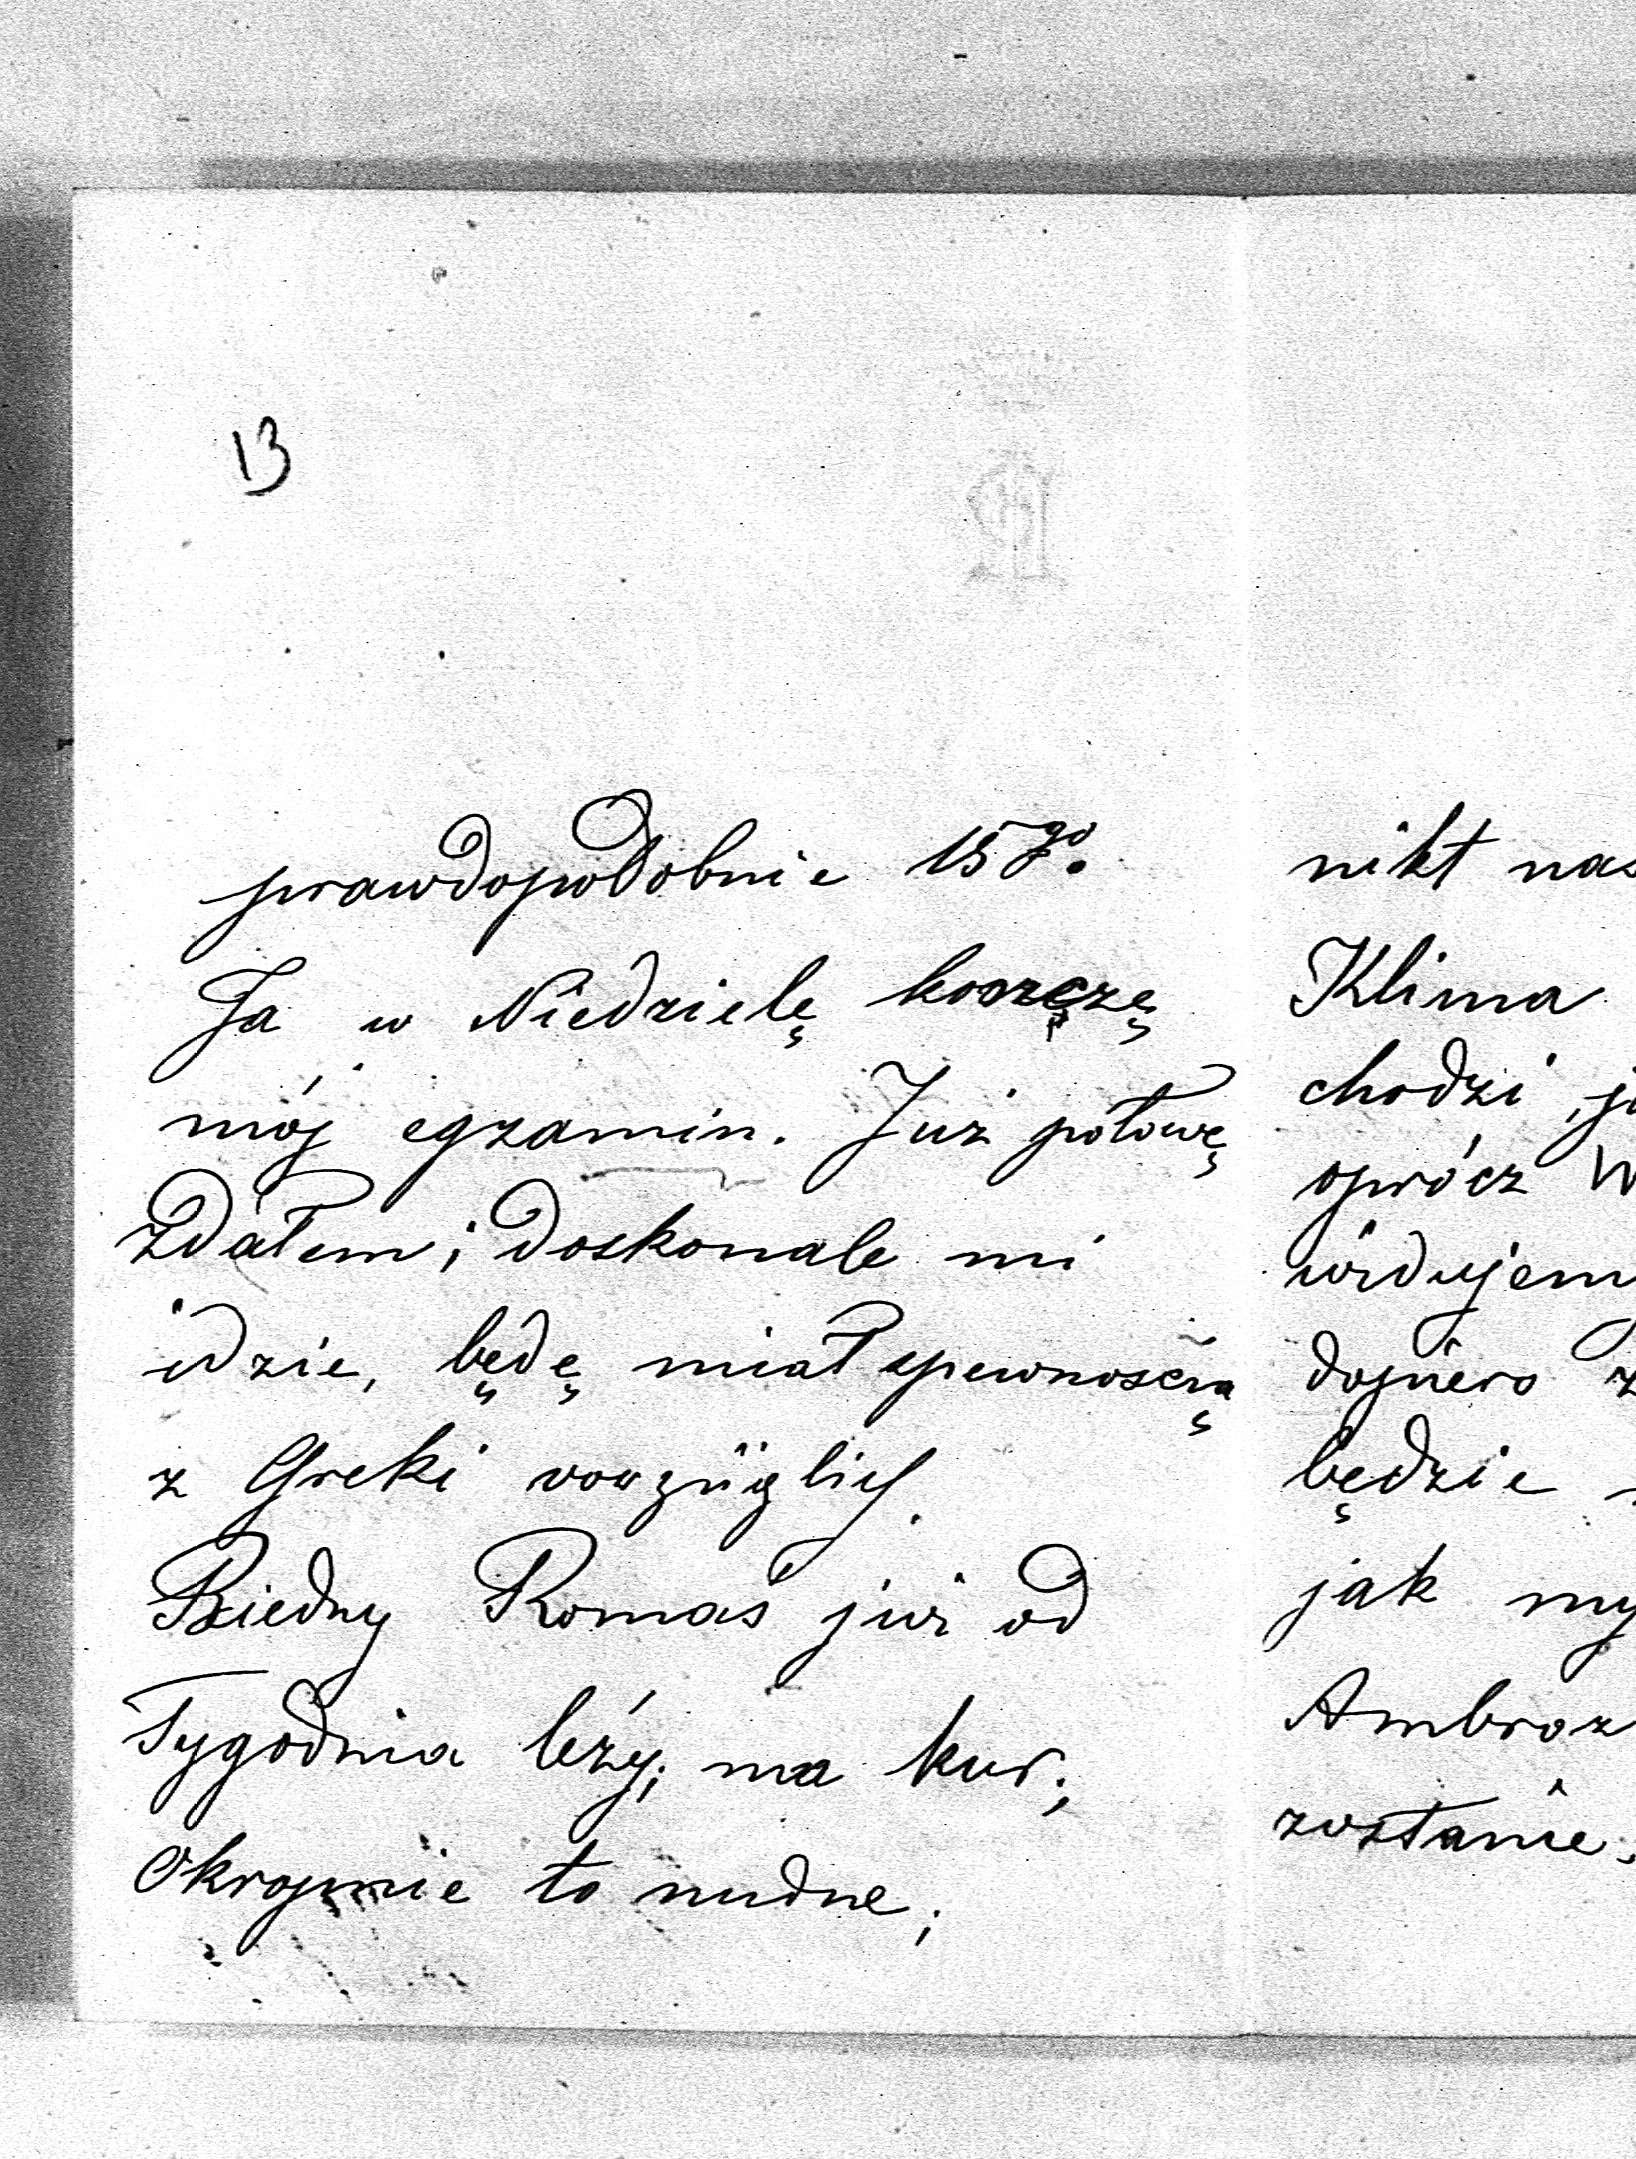 13
prawdopodobnie 15go.
Ja w Niedzielę
mój egzamin. Już połowę
zdałem; doskonale mi
idzie, będę miał zpewnością
z Greki vorzüglich.
Biedny Romaś już od
Tygodnia leży; ma kur;
Okropnie to nudne;
nikt nas
Klima
chodzi, 
oprócz
widujemy
dopiero z
będzie
jak my
Ambroz
zostanie.